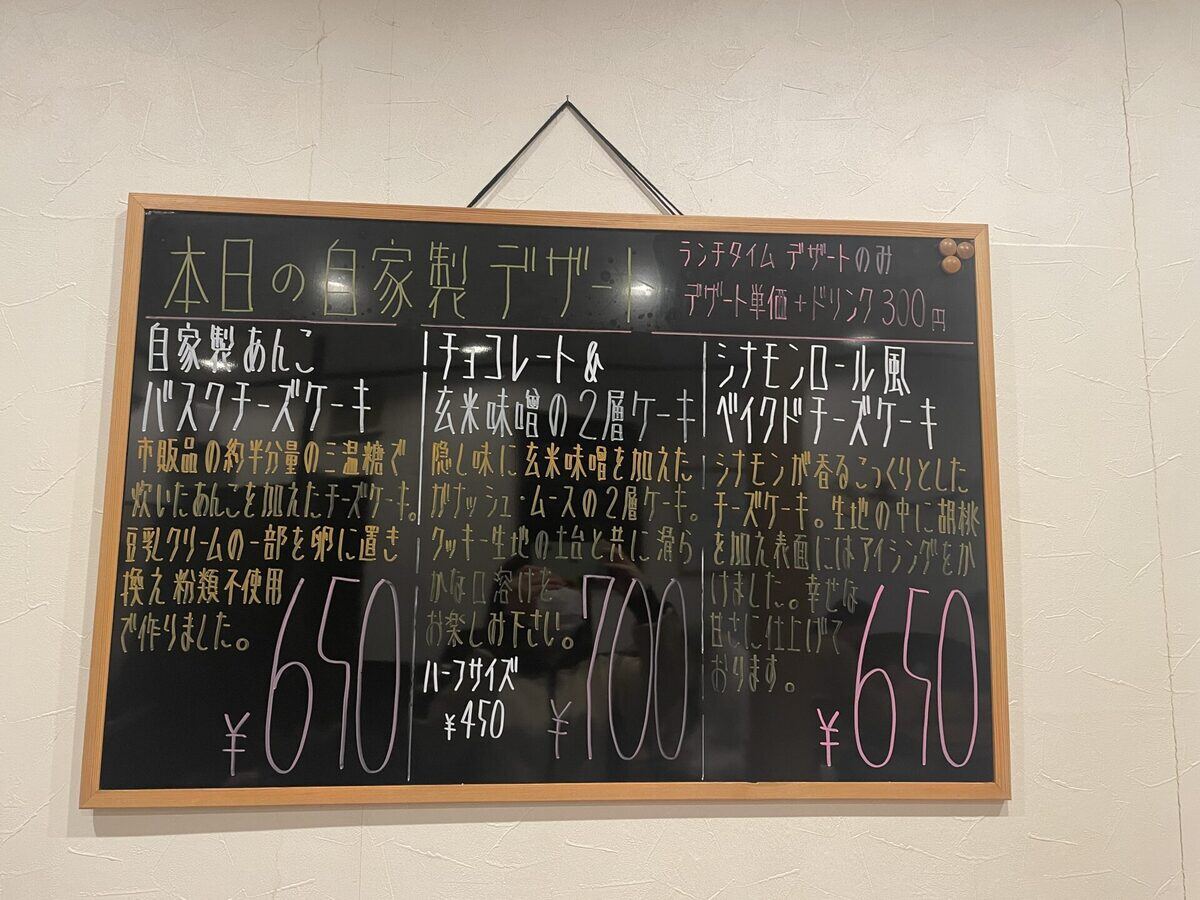 本日の自家製デザート
ランチタイム デザートのみ
デザート単価+ドリンク300円
自家製あんこ
バスクチーズケーキ
市販品の約半分量の三温糖で
炊いたあんこを加えたチーズケーキ。
豆乳クリームの一部を卵に置き
換え粉類不使用
で作りました。
¥650
チョコレート&
玄米味噌の2層ケーキ
隠し味に玄米味噌を加えた
ガナッシュ・ムースの2層ケーキ。
クッキー生地の土台と共に滑ら
かな口溶けを
お楽しみ下さい。
ハーフサイズ
¥450
¥700
シナモンロール風
ベイクドチーズケーキ
シナモンが香るこっくりとした
チーズケーキ。生地の中に胡桃
を加え表面にはアイシングをか
けました。幸せな
甘さに仕上げて
おります。
¥650